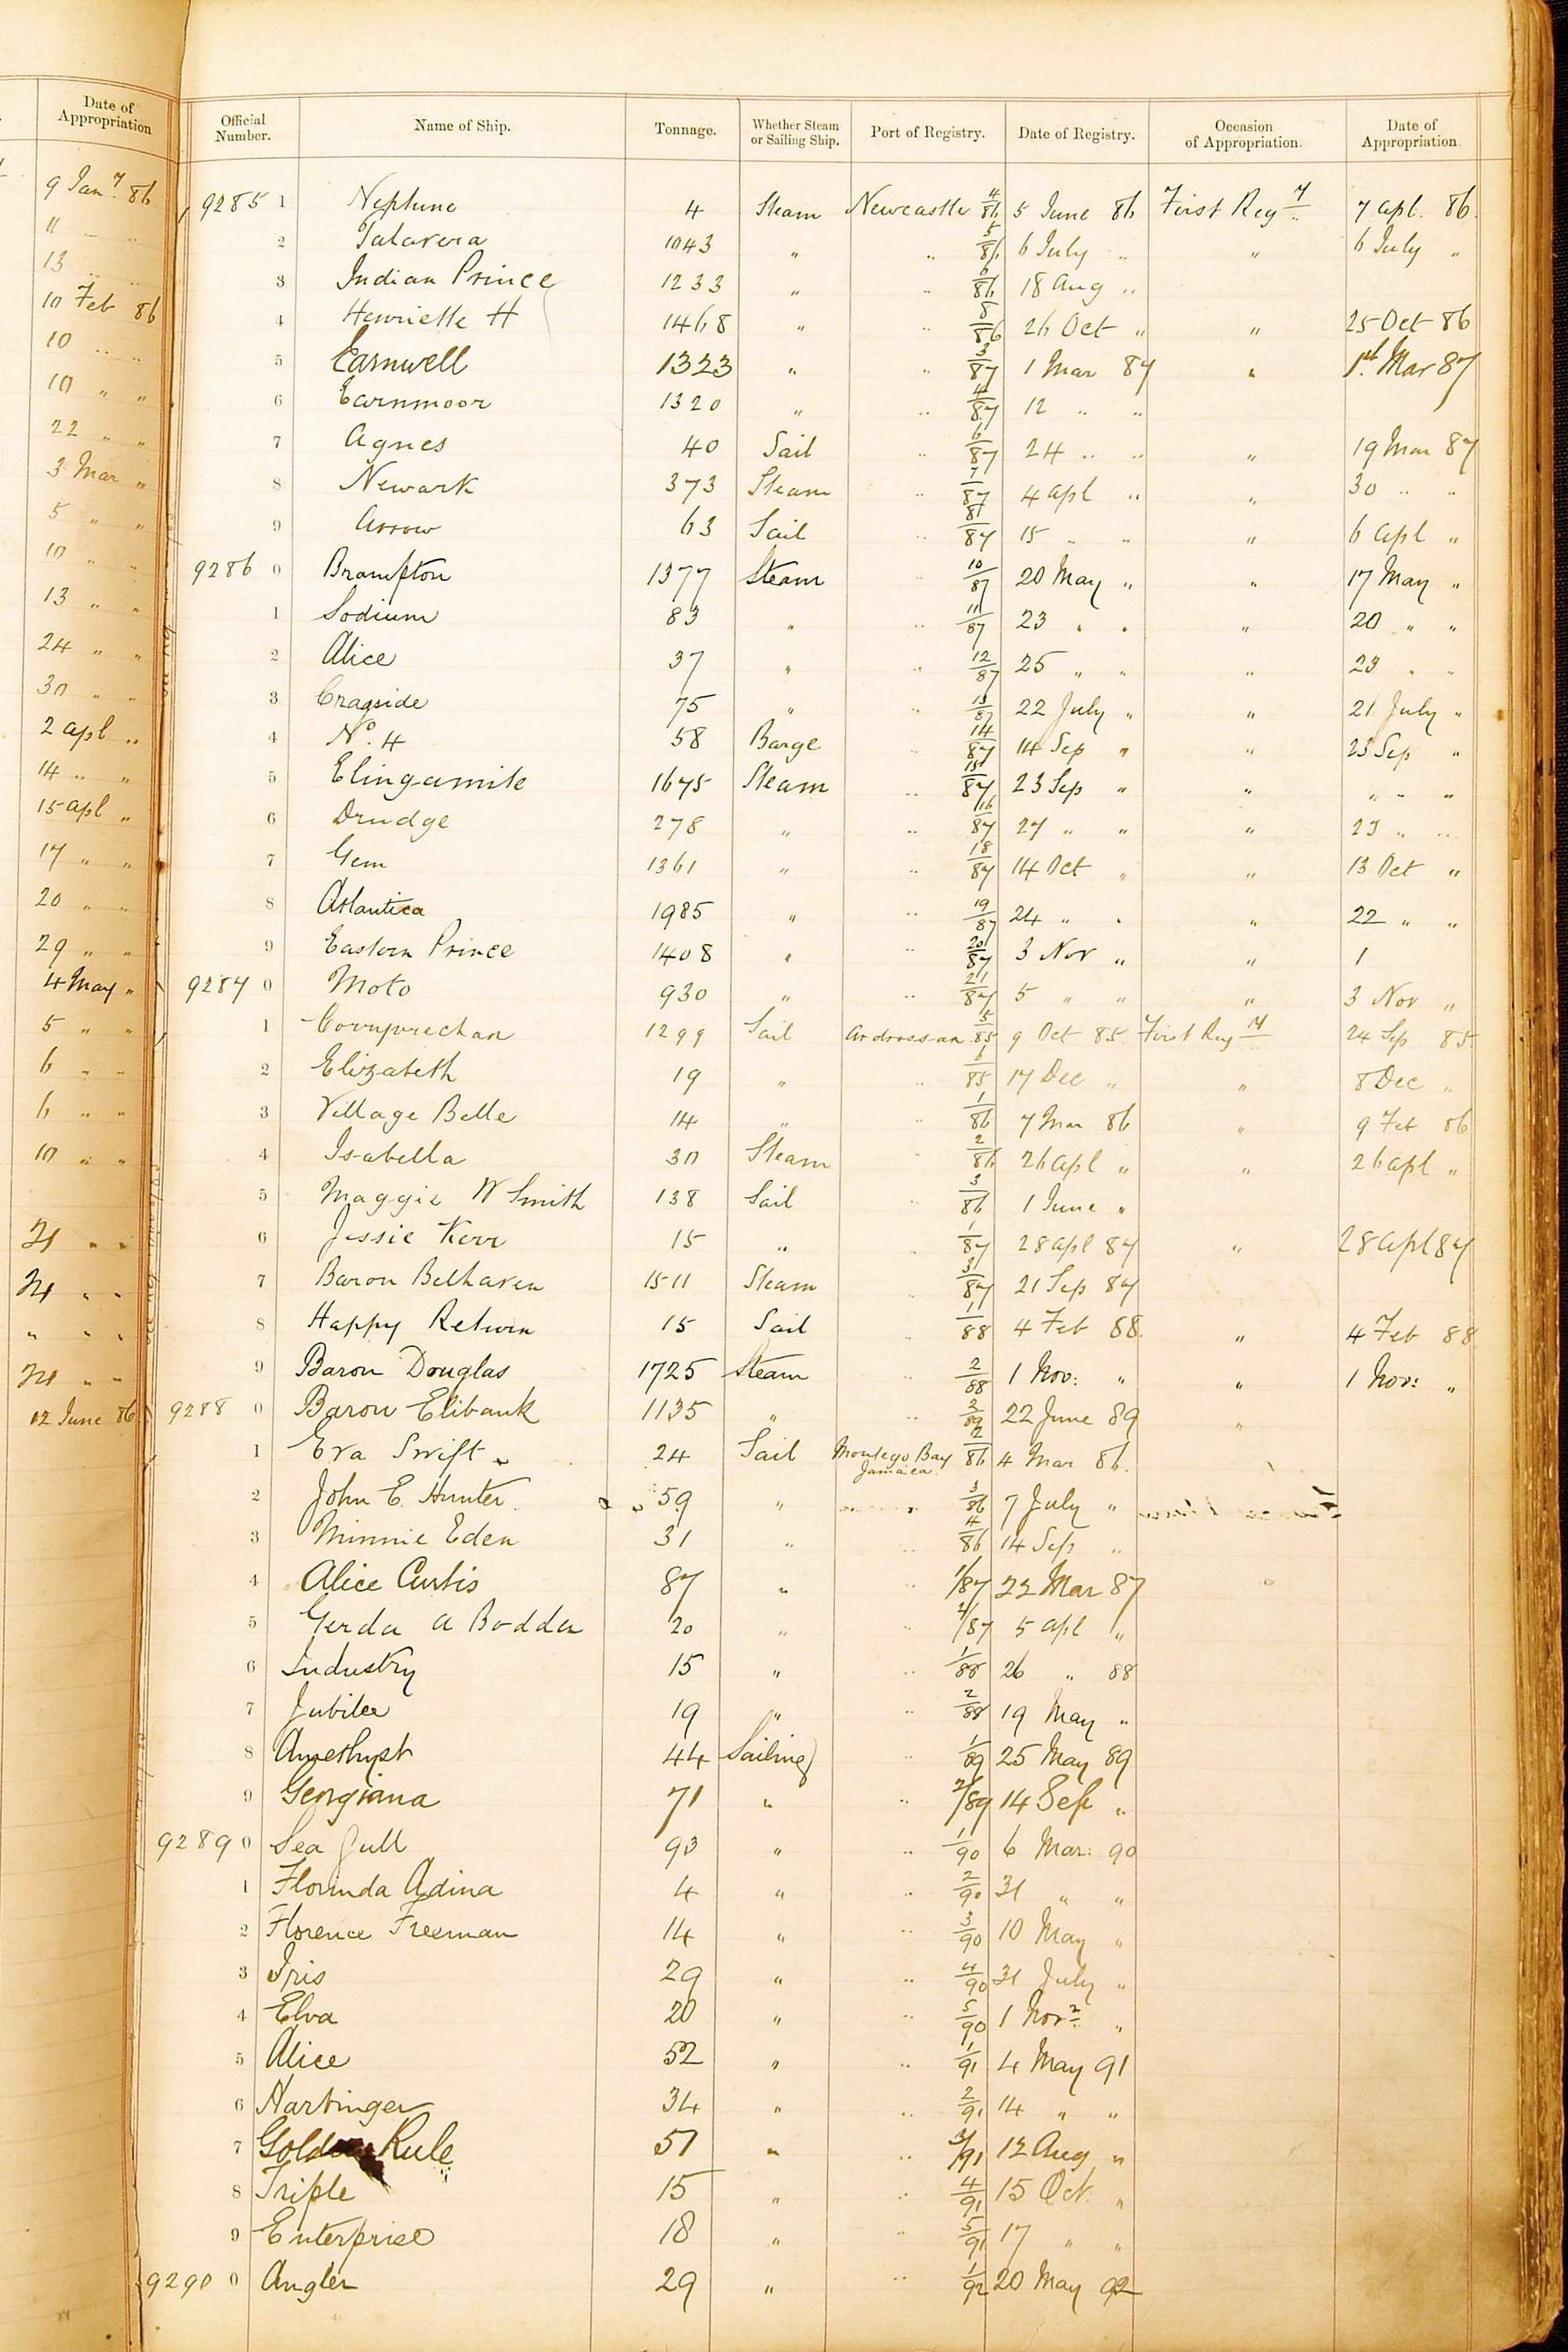 Date of Appropriation
9 Jany. 86
" " "
13 " "
10 Feb 86
10 " "
10 " "
22 " "
3 Mar "
5 " "
10 " "
13 " "
24 " "
30 " "
2 apl "
14 " "
15 apl "
17 " "
20 " "
29 " "
4 May "
5 " "
6 " "
6 " "
10 " "
21 " "
21 " "
" " "
21 " "
12 June 86
Official Number. Name of Ship. Tonnage. Whether Steam or Sailing Ship. Port of Registry. Date of Registry. Occasion of Appropriation. Date of Appropriation.
9285 1 Neptune 4 Steam Newcastle 4/86 5 June 86 First Regy 7 apl. 86
2 Talavera 1043 " " 5/86 6 July " " 6 July "
3 Indian Prince 1233 " " 6/86 18 Aug "
4 Henriette H 1468 " " 8/86 26 Oct " " 25 Oct 86
5 Earnwell 1323 " " 3/87 1 Mar 87 " 1st Mar 87
6 Earnmoor 1320 " " 4/87 12 " "
7 Agnes 40 Sail " 6/87 24 " " " 19 Mar 87
8 Newark 373 Steam " 7/87 4 apl " " 30 " "
9 Arrow 63 Sail " 8/87 15 " " " 6 apl "
9286 0 Brampton 1377 Steam " 10/87 20 May " " 17 May "
1 Sodium 83 " " 11/87 23 " " " 20 " "
2 Alice 37 " " 12/87 25 " " " 23 " "
3 Cragside 75 " " 13/87 22 July " " 21 July "
4 No. 4 58 Barge " 14/87 14 Sep " " 23 Sep "
5 Elingamite 1675 Steam " 15/87 23 Sep " " " " "
6 Drudge 278 " " 16/87 27 " " " 23 " "
7 Gem 1361 " " 18/87 14 Oct " " 13 Oct "
8 Atlantica 1985 " " 19/87 24 " " " 22 " "
9 Eastern Prince 1408 " " 20/87 3 Nov " " 1
9287 0 Moto 930 " " 21/87 5 " " " 3 Nov "
1 Corryvrechan 1299 Sail Ardrossan 5/85 9 Oct 85 First Regy 24 Sep 85
2 Elizabeth 19 " " 6/85 17 Dec " " 8 Dec "
3 Village Belle 14 " " 1/86 7 Mar 86 " 9 Feb 86
4 Isabella 30 Steam " 2/86 26 apl " " 26 apl "
5 Maggie W Smith 138 Sail " 3/86 1 June "
6 Jessie Kerr 15 " " 1/87 28 apl 87 " 28 apl 87
7 Baron Belhaven 1511 Steam " 3/87 21 Sep 87
8 Happy Return 15 Sail " 1/88 4 Feb 88 " 4 Feb 88
9 Baron Douglas 1725 Steam " 2/88 1 Nov: " " 1 Nov: "
9288 0 Baron Elibank 1135 " " 2/89 22 June 89 "
1 Eva Swift 24 Sail Montego Bay Jamaica 2/86 4 Mar 86
2 John E. Hunter 59 " " 3/86 7 July "
3 Minnie Eden 31 " " 4/86 14 Sep "
4 Alice Curtis 87 " " 1/87 22 Mar 87
5 Gerda A Bodden 20 " " 2/87 5 apl "
6 Industry 15 " " 1/88 26 " 88
7 Jubilee 19 " " 2/88 19 May "
8 Amethyst 44 Sailing " 1/89 25 May 89
9 Georgiana 71 " " 2/89 14 Sep "
9289 0 Sea Gull 93 " " 1/90 6 Mar: 90
1 Florinda Adina 4 " " 2/90 31 " "
2 Florence Freeman 14 " " 3/90 10 May "
3 Iris 29 " " 4/90 31 July "
4 Elva 20 " " 5/90 1 Novr "
5 Alice 52 " " 1/91 4 May 91
6 Harbinger 34 " " 2/91 14 " "
7 Golden Rule 51 " " 3/91 12 Aug "
8 Triple 15 " " 4/91 15 Oct. "
9 Enterprise 18 " " 5/91 17 " "
9290 0 Angler 29 " " 1/92 20 May 92